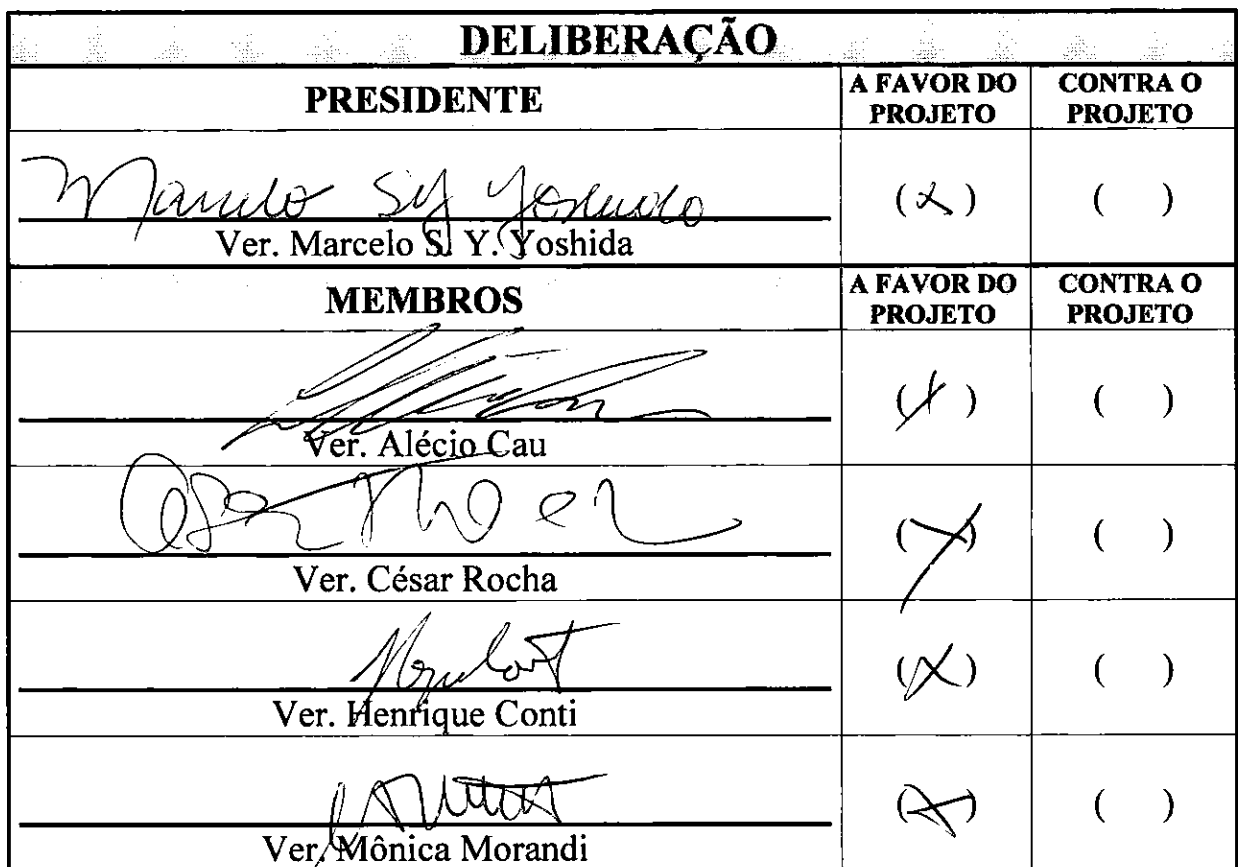 DELIBERAÇÃO
PRESIDENTE
A FAVOR DO PROJETO
CONTRA O PROJETO
Marcelo SY Yoshida
(x) ( )
Ver. Marcelo S. Y. Yoshida
MEMBROS
A FAVOR DO PROJETO
CONTRA O PROJETO
(x) ( )
Ver. Alécio Cau
(x) ( )
Ver. César Rocha
(x) ( )
Ver. Henrique Conti
(x) ( )
Ver. Mônica Morandi